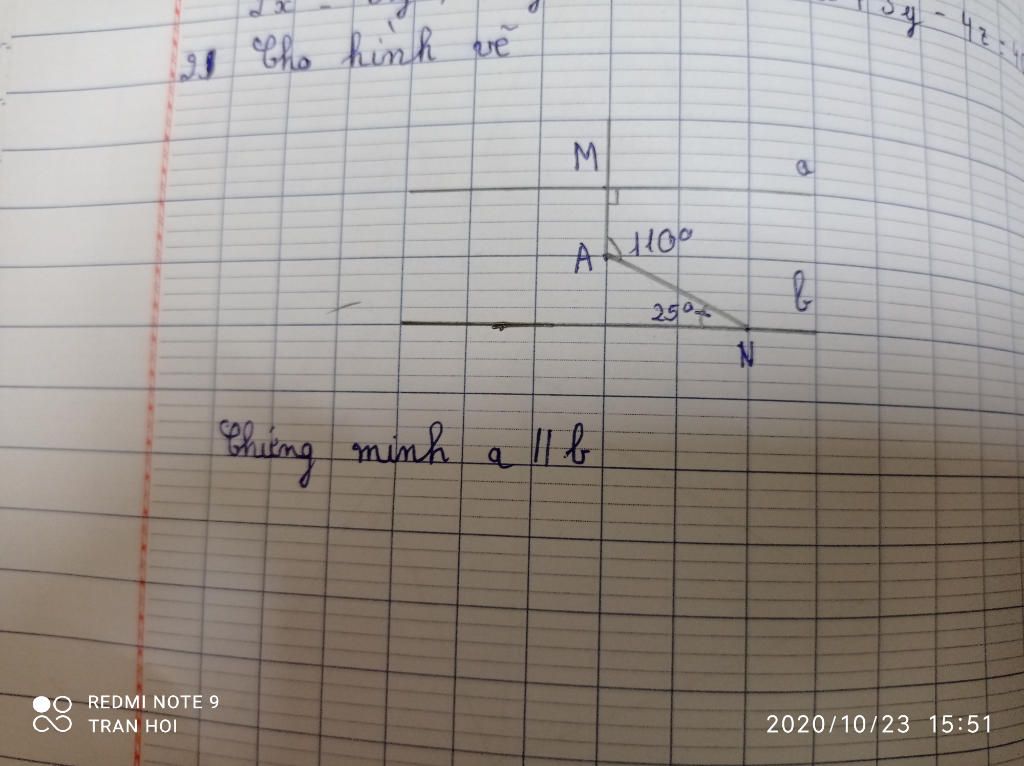 2) Cho hình vẽ
M
a
A 110°
25°
b
N
Chứng minh a // b
REDMI NOTE 9
TRAN HOI
2020/10/23 15:51